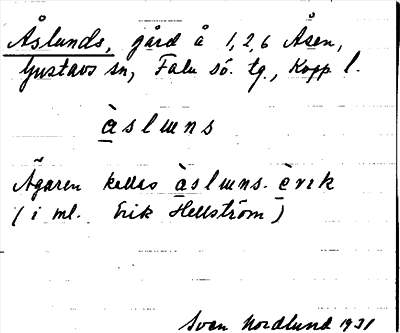 Åslunds, gård å 1, 2, 6 Åsen,
Gustavs sn, Falu sö. tg., Kopp. l.
àslɯns
Ägaren kallas àslɯns. èrɩk
(i ml. Erik Hellström)
Sven Nordlund 1931